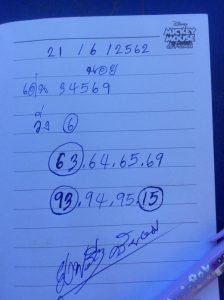 Disney
MICKEY
MOUSE
21 / 6 / 2562
น้อย
เด่น 34569
วิ่ง 6
63.64.65.69
93.94.95.15